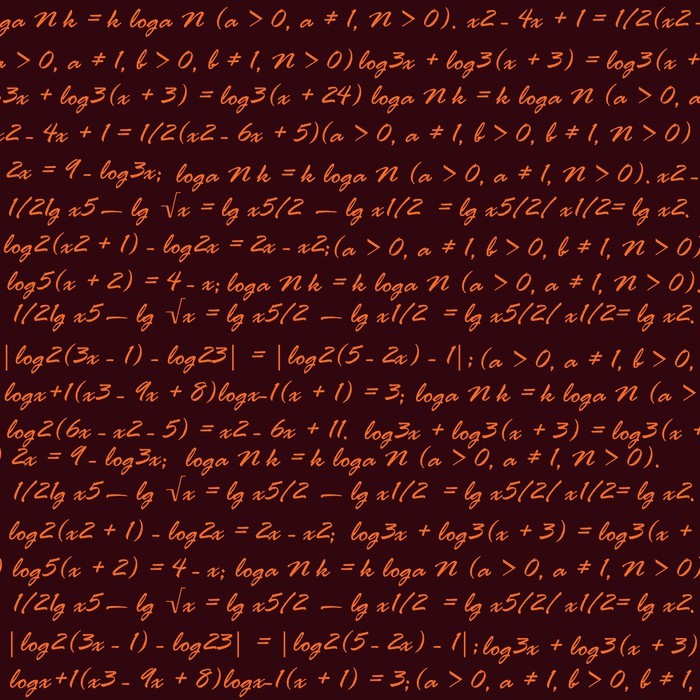 ga n k = k loga n (a > 0, a ≠ 1, n > 0). x2 - 4x + 1 = 1/2(x2 -
a > 0, a ≠ 1, b > 0, b ≠ 1, n > 0) log3x + log3(x + 3) = log3(x +
3x + log3(x + 3) = log3(x + 24) loga n k = k loga n (a > 0, a
x2 - 4x + 1 = 1/2(x2 - 6x + 5)(a > 0, a ≠ 1, b > 0, b ≠ 1, n > 0)
2x = 9 - log3x; loga n k = k loga n (a > 0, a ≠ 1, n > 0). x2 -
1/2lg x5 — lg √x = lg x5/2 — lg x1/2 = lg x5/2/ x1/2= lg x2.
log2(x2 + 1) - log2x = 2x - x2;(a > 0, a ≠ 1, b > 0, b ≠ 1, n > 0)
log5(x + 2) = 4 - x; loga n k = k loga n (a > 0, a ≠ 1, n > 0).
1/2lg x5 — lg √x = lg x5/2 — lg x1/2 = lg x5/2/ x1/2= lg x2.
|log2(3x - 1) - log23| = |log2(5 - 2x) - 1|; (a > 0, a ≠ 1, b > 0,
logx+1(x3 - 9x + 8)logx-1(x + 1) = 3; loga n k = k loga n (a >
log2(6x - x2 - 5) = x2 - 6x + 11. log3x + log3(x + 3) = log3(x +
) 2x = 9 - log3x; loga n k = k loga n (a > 0, a ≠ 1, n > 0).
1/2lg x5 — lg √x = lg x5/2 — lg x1/2 = lg x5/2/ x1/2= lg x2.
log2(x2 + 1) - log2x = 2x - x2; log3x + log3(x + 3) = log3(x +
) log5(x + 2) = 4 - x; loga n k = k loga n (a > 0, a ≠ 1, n > 0)
1/2lg x5 — lg √x = lg x5/2 — lg x1/2 = lg x5/2/ x1/2= lg x2.
|log2(3x - 1) - log23| = |log2(5 - 2x) - 1|;log3x + log3(x + 3)
logx+1(x3 - 9x + 8)logx-1(x + 1) = 3;(a > 0, a ≠ 1, b > 0, b ≠ 1